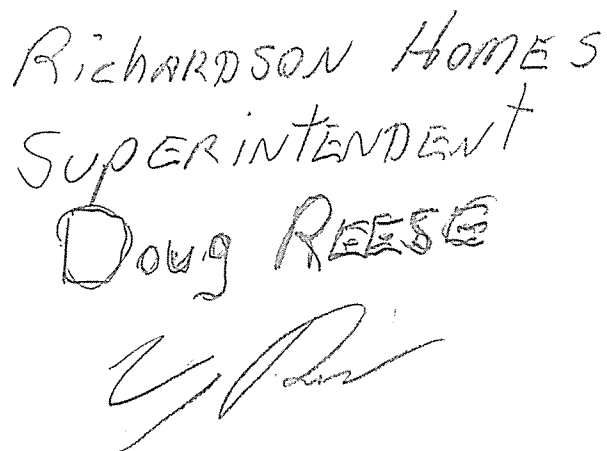 RichARDSON HOMES
SUPERINTENDENT
Doug REESE